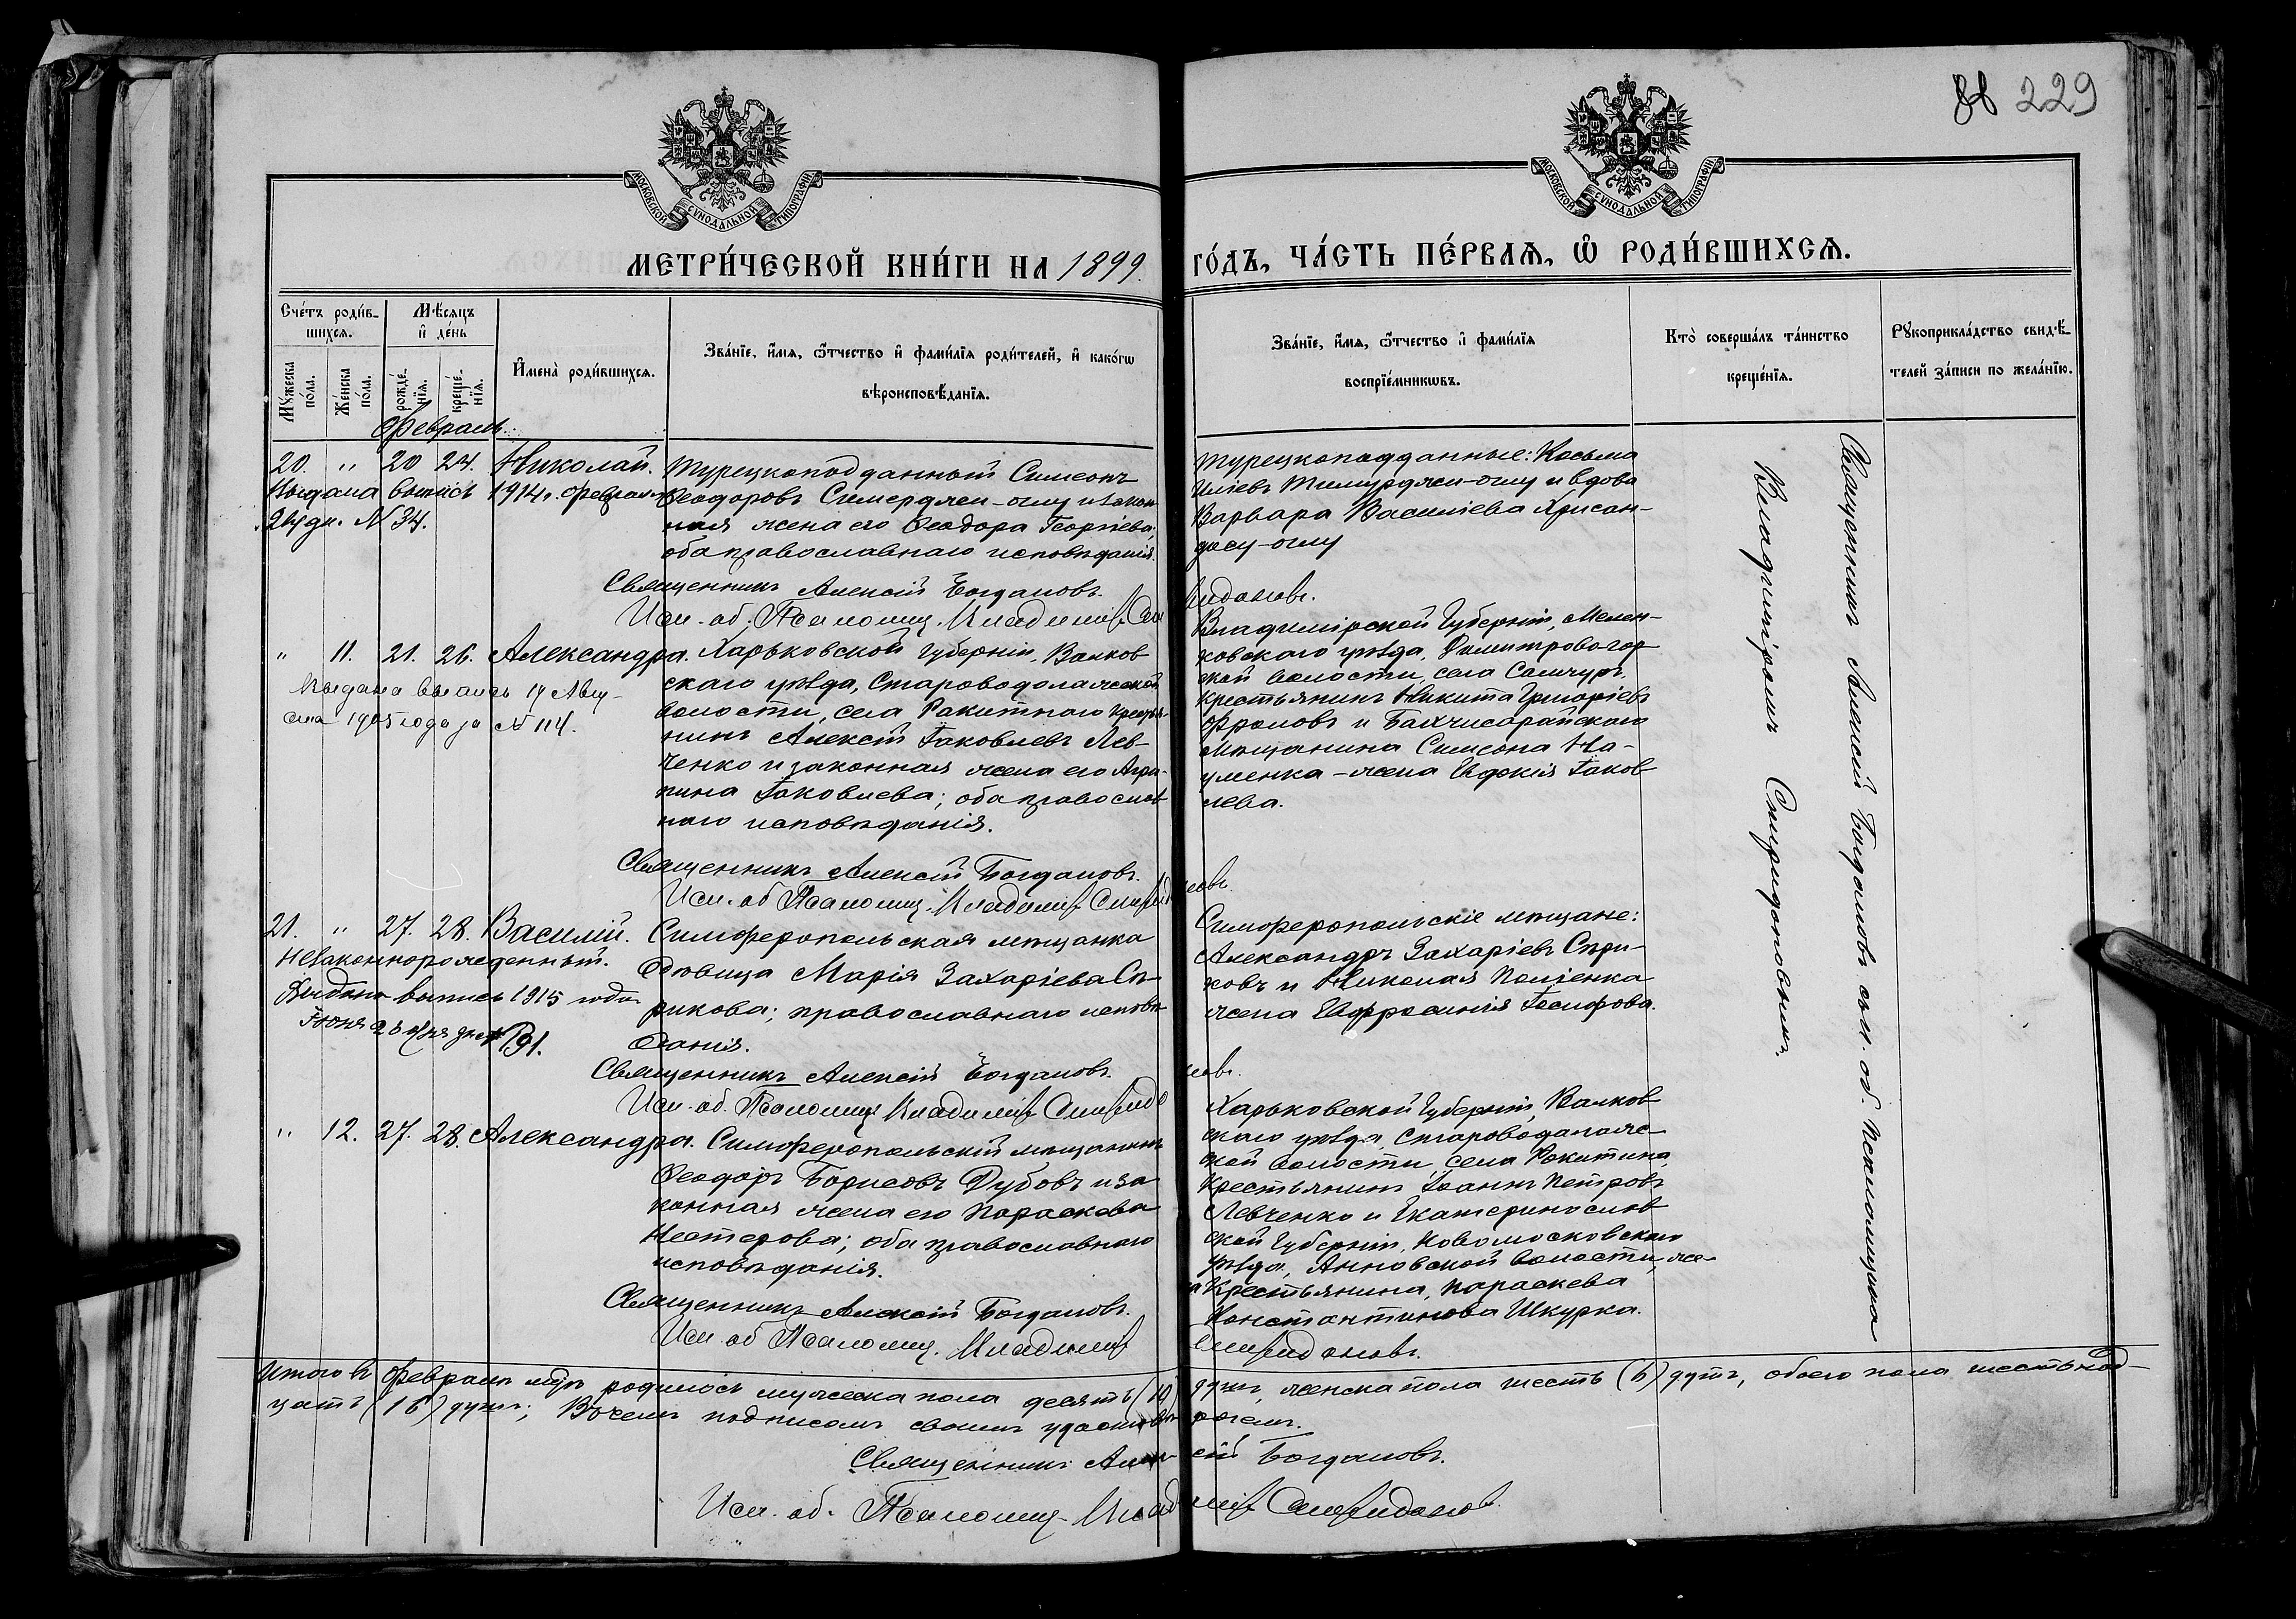 88 229
МОСКОВСКОЙ СѴНОДАЛЬНОЙ ТИПОГРАФІИ
МОСКОВСКОЙ СѴНОДАЛЬНОЙ ТИПОГРАФІИ
МЕТРИ́ЧЕСКОЙ КНИ́ГИ НА 1899. ГО́ДЪ, ЧА́СТЬ ПЕ́РВАѦ, Ѽ РОДИ́ВШИХСѦ.
Сче́тъ роди́в-
шихсѧ.
Мѣ́сяцъ
и де́нь
Мꙋ́жеска
по́ла.
Же́нска
по́ла.
рожде́-
нїѧ.
креще́-
нїѧ.
И҆мена̀ роди́вшихсѧ.
Зва́нїе, и҆́мѧ, ѻ҆́тчество и҆ фами́лїѧ роди́телей, и҆ како́гѡ
вѣроисповѣ́данїѧ.
Зва́нїе, и҆́мѧ, ѻ҆́тчество и҆ фами́лїѧ
воспрїе́мникѡвъ.
Кто̀ соверша́лъ та́инство
креще́нїѧ.
Рꙋкоприкла́дство свидѣ́-
телей за́писи по жела́нїю.
Февраль.
20. " 20 24. Николай.
Выдана выпись 1914 г. Февраля
2 дн. № 34.
Турецкоподданный Симеонъ
Ѳеодоровъ Симерджи-оглу и закон-
ная жена его Ѳеодора Георгіева;
оба православнаго исповѣданія.
Священникъ Алексій Богдановъ.
Исп. об. Псаломщ. Владиміръ Спиридоновъ.
Турецкоподданные: Косьма
Иліевъ Тимурджи-оглу и вдова
Варвара Василіева Хрисан-
досу-оглу
" 11. 21. 26. Александра.
Выдана выпись 19 Авгу-
ста 1905 года за № 114.
Харьковской губерніи, Валков-
скаго уѣзда, Староводолажской
волости, села Ракитнаго крестья-
нинъ Алексій Іаковлевъ Лев-
ченко и законная жена его Агри-
пина Іаковлева; оба православ-
наго исповѣданія.
Священникъ Алексій Богдановъ.
Исп. об. Псаломщ. Владиміръ Спиридоновъ.
Владимірской губерніи, Мелен-
ковскаго уѣзда, Димитровогор-
ской волости, села
крестьянинъ Никита Григоріевъ
Фроловъ и Бахчисарайскаго
мѣщанина Симеона На-
уменка - жена Евдокія Іаков-
лева.
21. " 27. 28. Василій.
Незаконнорожденный.
Выдана выпись 1915 года
Іюня 23 дня за № 91.
Симферопольская мѣщанка
дѣвица Марія Захаріева Сп-
рикова; православнаго исповѣ-
данія.
Священникъ Алексій Богдановъ.
Исп. об. Псаломщ. Владиміръ Спиридоновъ.
Симферопольскіе мѣщане:
Александръ Захаріевъ Спри-
ковъ и Николая Поліенка
жена Евфросинія Іосифова.
" 12. 27. 28. Александра.
Симферопольскій мѣщанинъ
Ѳеодоръ Борисовъ Дубовъ и за-
конная жена его Параскева
Нестерова; оба православнаго
исповѣданія.
Священникъ Алексій Богдановъ.
Исп. об. Псаломщ. Владиміръ Спиридоновъ.
Харьковской губерніи, Валков-
скаго уѣзда, Староводолаж-
ской волости, села Рокитина,
крестьянинъ Іоаннъ Петровъ
Левченко и Екатеринослав-
ской губерніи, Новомосковскаго
уѣзда, Анновской волости, же-
на крестьянина, Параскева
Константинова Шкурка.
Священникъ Алексій Богдановъ съ и. об. псаломщика
Владиміромъ Спиридоновымъ.
Итого въ Февралѣ м-цѣ родилось мужеска пола десять (10) душъ, женска пола шесть (6) душъ, обоего пола шестнад-
цать (16) душъ; въ чемъ подписомъ своимъ удостовѣряемъ.
Священникъ Алексій Богдановъ.
Исп. об. Псаломщ. Владиміръ Спиридоновъ.